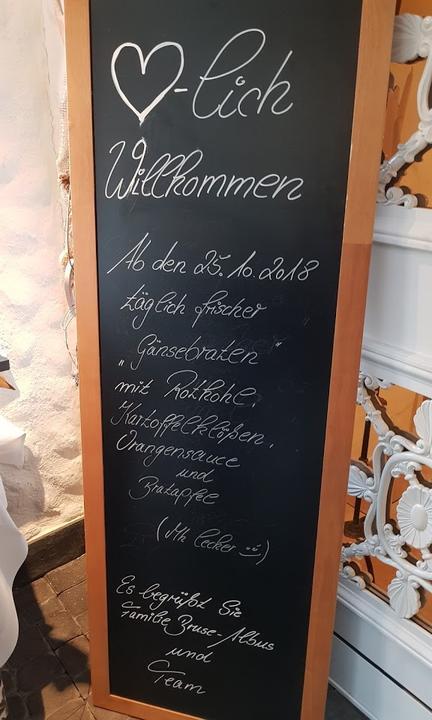 ♡-lich
Willkommen
Ab den 25.10.2018
täglich frischer
"Gänsebraten"
mit Rotkohl,
Kartoffelklößen,
Orangensauce
und
Bratapfel
(Mh lecker ü)
Es begrüßt Sie
Familie Bruse-Albus
und
Team